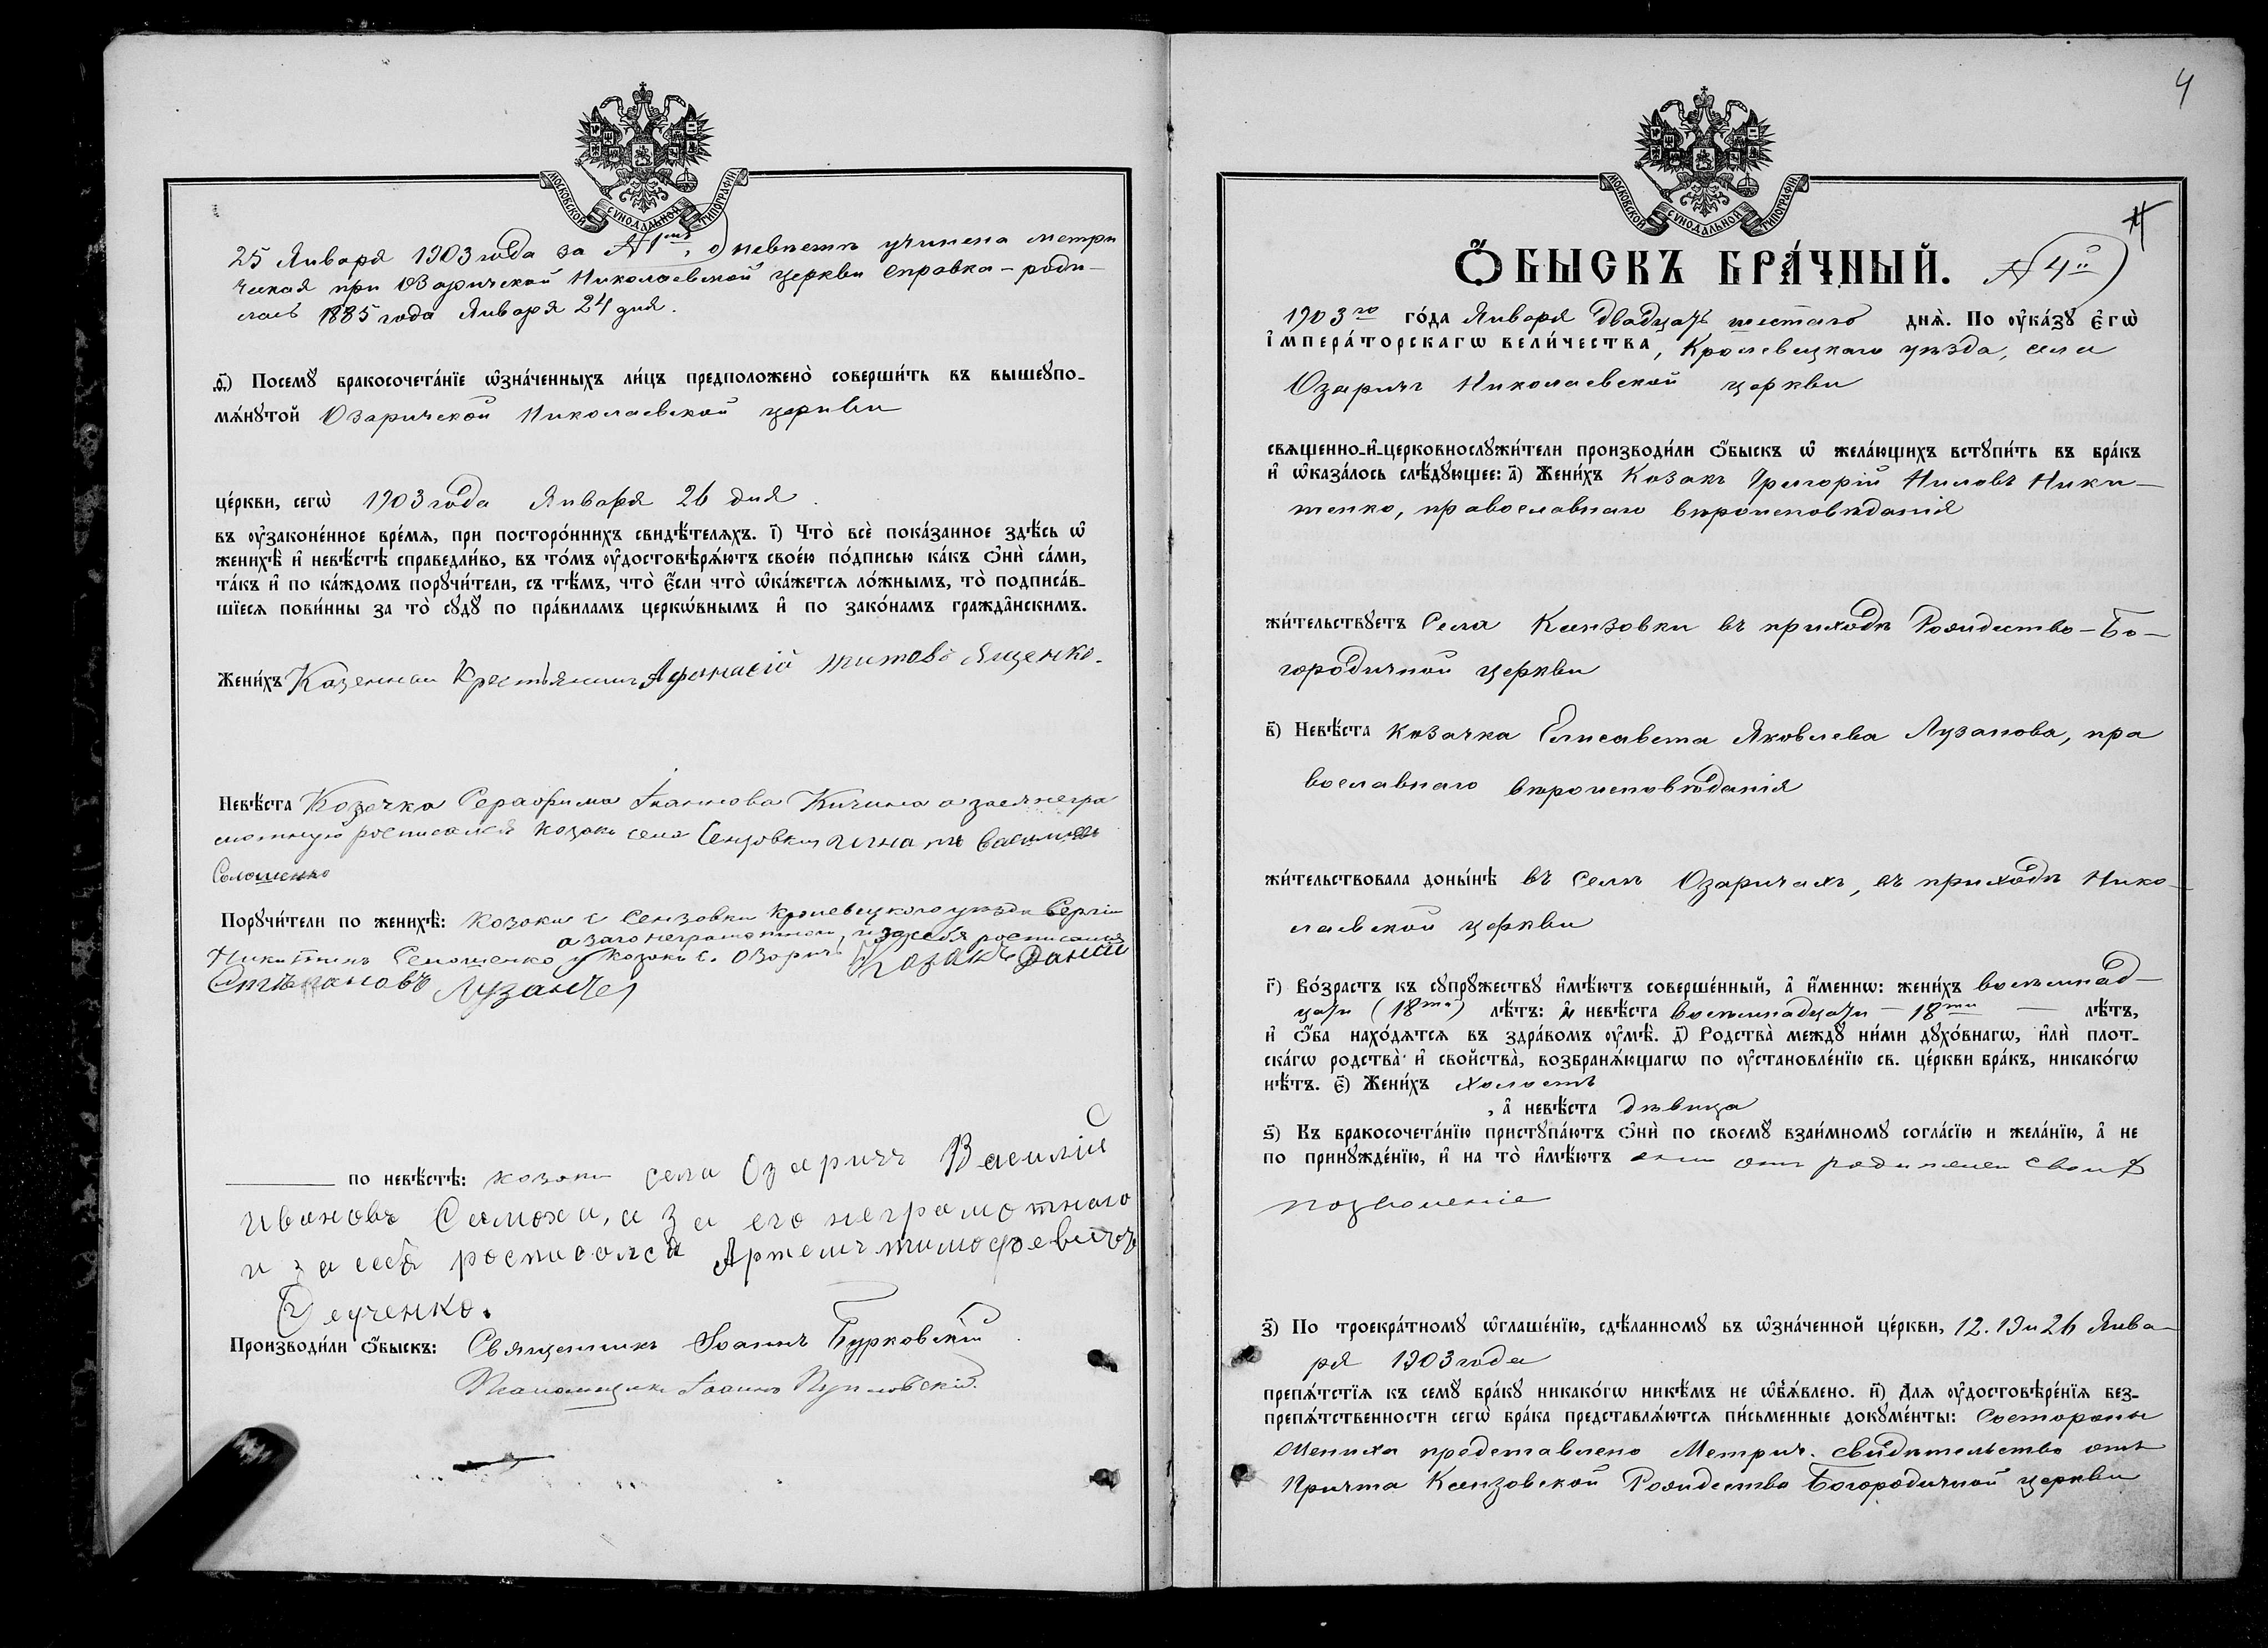 МОСКОВСКОЙ СѴНОДАЛЬНОЙ ТИПОГРАФІИ
25 Января 1903 года за № 1мъ, о невѣстѣ учинена метри
ческая при Озаричской Николаевской церкви справка – роди–
лась 1885 года Января 24 дня.
ѳ҃) Посемꙋ бракосочета́нїе ѡ҆зна́ченныхъ ли́цъ предположено̀ соверши́ть въ вышеꙋпо-
мѧ́нꙋтой Озаричской Николаевской церкви
це́ркви, сегѡ̀ 1903 года Января 26 дня.
въ ᲂу҆законе́нное вре́мѧ, при посторо́ннихъ свидѣ́телѧхъ. і҃) Что̀ всѐ пока́занное здѣ́сь ѡ҆
женихѣ̀ и҆ невѣ́стѣ справедли́во, въ то́мъ ᲂу҆достовѣрѧ́ютъ свое́ю по́дписью ка́къ ѻ҆нѝ са́ми,
та́къ и҆ по ка́ждомъ порꙋчи́тели, съ тѣ́мъ, что̀ є҆́сли что̀ ѡ҆ка́жетсѧ ло́жнымъ, то̀ подписа́в-
шїесѧ пови́нны за то̀ сꙋдꙋ̀ по пра́виламъ церкѡ́внымъ и҆ по зако́намъ гражда̑нскимъ.
Жени́хъ Казенный Крестьянинъ Афанасій Титовъ Ященко.
Невѣ́ста Козачка Серафима Іваннова Кичина а за ея негра
мотную росписался козакъ села Сензовки Васильевъ
Солошенко
Порꙋчи́тели по женихѣ̀: Козаки с Сензовки Кролевецкого уезда Сергіи
а за его неграмотного, и за себя росписался
Никитинъ Селошенко и Козакъ с. Озоричъ Козакъ Данил
Степановъ Лузанъ
по невѣ́стѣ: козаки села Озаричъ Василій
Ивановъ Самоха, а за его неграмотнаго
и за себя росписался Артемъ Тимофеевичъ
Производи́ли ѻ҆́быскъ: Священникъ Іоаннъ Бурковскій
Псаломщикъ Іоаннъ
4
МОСКОВСКОЙ СѴНОДАЛЬНОЙ ТИПОГРАФІИ
Ѻ҆́БЫСКЪ БРА́ЧНЫЙ. № 4й
1903го го́да Января двадцать шестаго днѧ̀. По ᲂу҆ка́зꙋ Є҆гѡ̀
І҆мпера́торскагѡ вели́чества, Кролевецкаго уѣзда, села
Озаричъ Николаевской церкви
свѧщенно-и҆-церковнослꙋжи́тели производи́ли ѻ҆́быскъ ѡ҆ жела́ющихъ встꙋпи́ть въ бра́къ
и҆ ѡ҆каза́лось слѣ́дꙋющее: а҃) Жени́хъ Козакъ Григорій Ниловъ Ники–
тенко, православнаго вѣроисповѣданія
жи́тельствꙋетъ Села Ксензовки въ приходѣ Рождество–Бо–
городичной церкви
в҃) Невѣ́ста козачка Елисавета Яковлева Лузанова, пра
вославнаго вѣроисповѣданія
жи́тельствовала доны́нѣ въ селѣ Озаричахъ, въ приходѣ Нико–
лаевской церкви
г҃) Во́зрастъ къ сꙋпрꙋ́жествꙋ и҆мѣ́ютъ соверше́нный, а҆ и҆́меннѡ: жени́хъ восемнад–
цати (18ти) лѣ́тъ: а҆ невѣ́ста восемнадцати – 18ти – лѣ́тъ,
и҆ ѻ҆́ба нахо́дѧтсѧ въ здра́вомъ ᲂу҆мѣ̀. д҃) Родства̀ междꙋ̀ ни́ми дꙋхо́внагѡ, и҆лѝ плот-
ска́гѡ родства̀ и҆ свойства̀, возбранѧ́ющагѡ по ᲂу҆становле́нїю св. це́ркви бра́къ, никако́гѡ
нѣ́тъ. є҃) Жени́хъ холостъ
, а҆ невѣ́ста дѣвица
ѕ҃) Къ бракосочета́нїю пристꙋпа́ютъ ѻ҆нѝ по своемꙋ̀ взаи́мномꙋ согла́сїю и жела́нїю, а҆ не
по принꙋжде́нїю, и҆ на то̀ и҆мѣ́ютъ они отъ родителей своихъ
позволеніе
з҃) По троекра́тномꙋ ѡ҆глаше́нїю, сдѣ́ланномꙋ въ ѡ҆зна́ченной це́ркви, 12. 19 и 26 Янва–
ря 1903 года
препѧ́тствїѧ къ семꙋ̀ бра́кꙋ никако́гѡ никѣ́мъ не ѡ҆б̾ѧ́влено. и҃) Для ᲂу҆достовѣре́нїѧ без-
препѧ́тственности сегѡ̀ бра́ка представлѧ́ютсѧ пи́сьменные докꙋме́нты: Со стороны
жениха представлено Метрич. свидѣтельство отъ
Причта Ксензовской Рождество Богородичной церкви